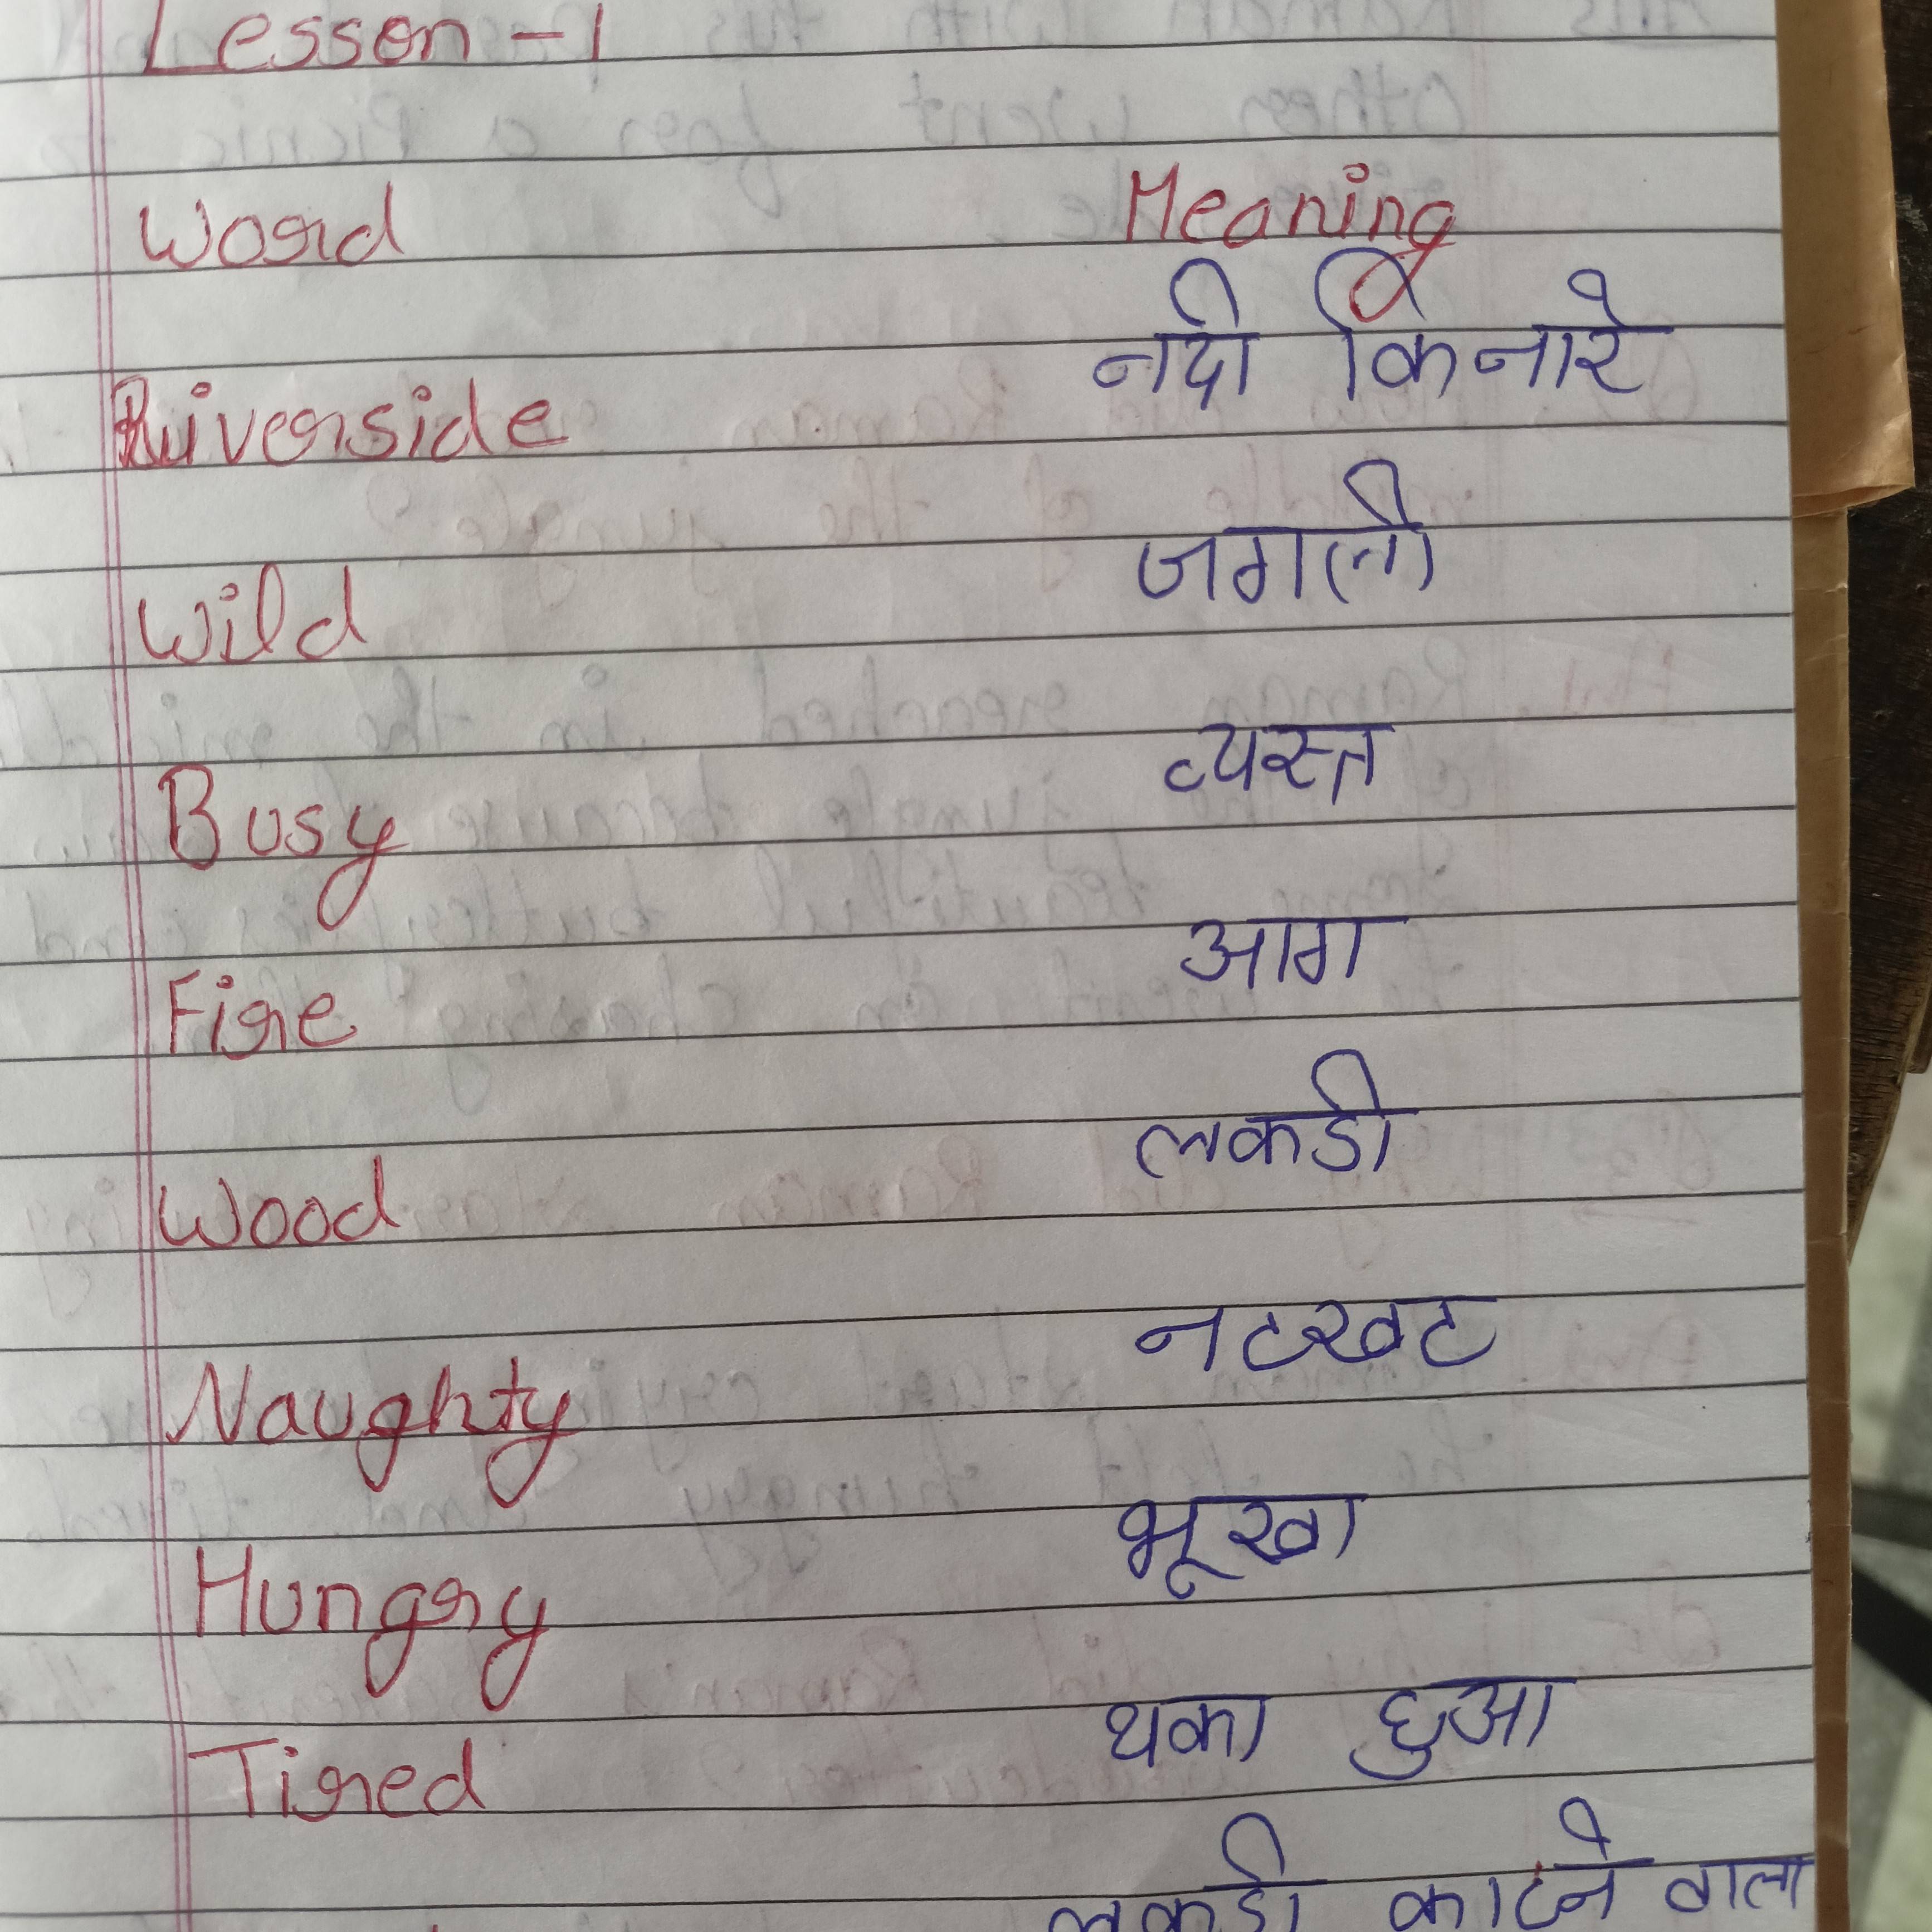 Lesson - 1
Word Meaning
Riverside नदी किनारे
Wild जगली
Busy व्यस्त
Fire आग
Wood लकडी
Naughty नटखट
Hungry भूखा
Tired थका हुआ
लकडी काटने वाला